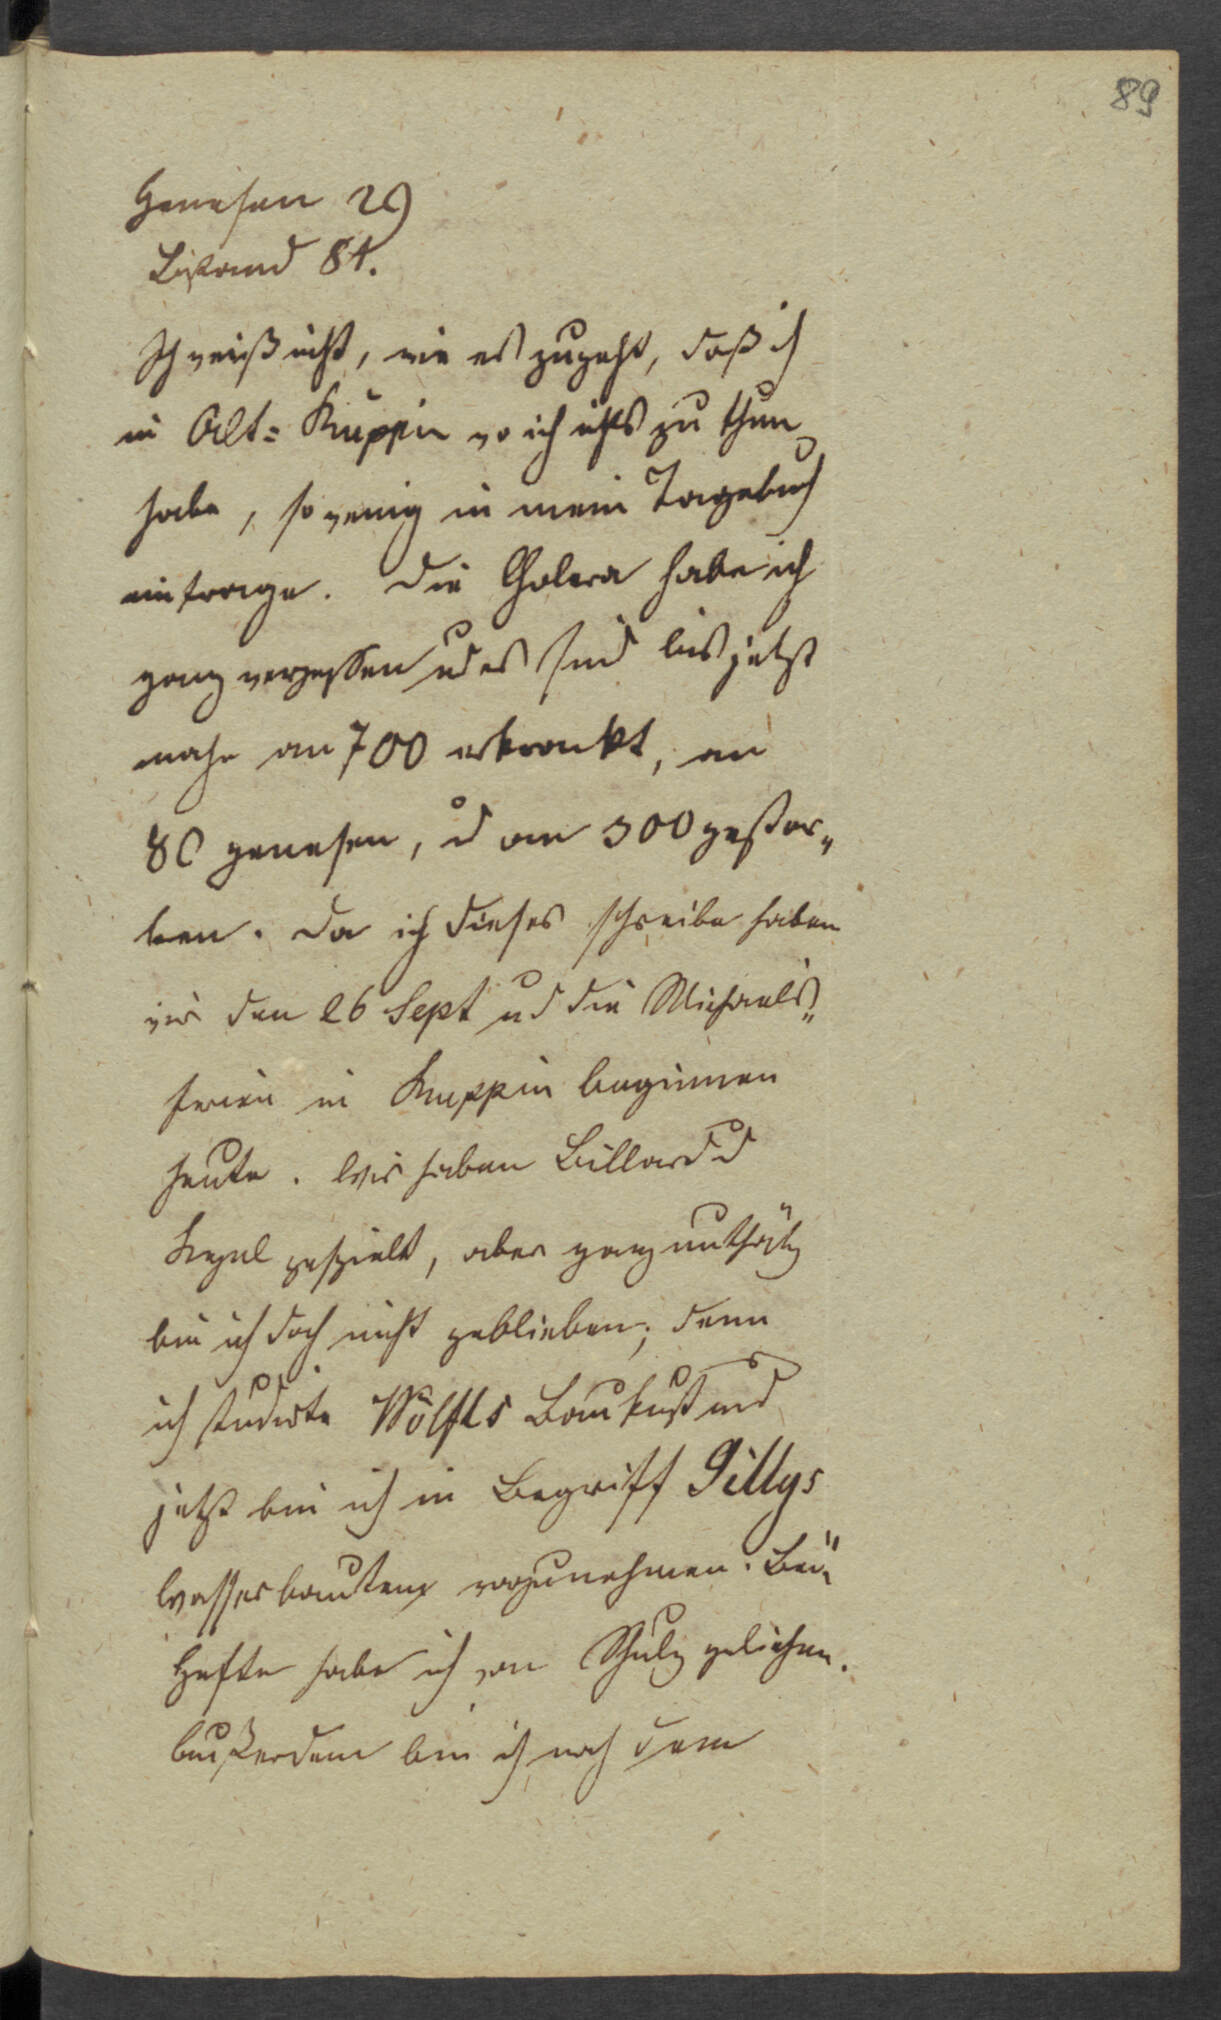 89
Genesen 29
Bestand 81.
Ich weiß nicht, wie es zugeht, daß ich
in Alt= Ruppin wo ich nichts zu thun
habe, so wenig in mein Tagebuch
eintrage. Die Cholera habe ich
ganz vergessen und es sind bis jetzt
nahe an 700 erkrankt, an
80 genesen, u an 500 gestor„
ben. Da ich dieses schreibe haben
wir den 26 Sept und die Michaelis„
ferien in Ruppin beginnen
heute. Wir haben Billard u
Kegel gespielt, aber ganz unthätig
bin ich doch nicht geblieben; denn
ich studirte Wölfls Baukunst und
jetzt bin ich in Begriff Gillys
Wasserbauten vorzunehmen. Beide
Hefte habe ich von Schulz geliehen.
Außerdem bin ich noch dem